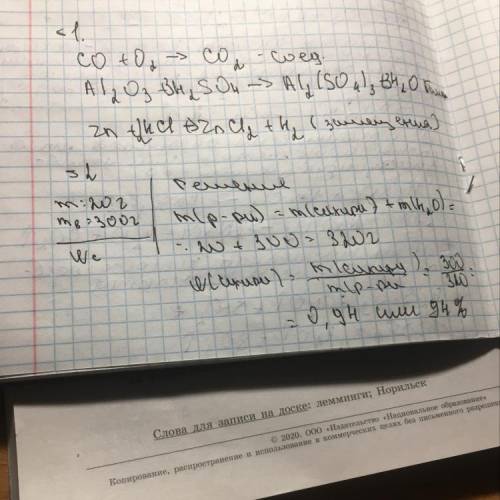 <1.
CO + O₂ → CO₂ - соед.
Al₂O₃ + 3H₂SO₄ → Al₂(SO₄)₃ + 3H₂O
Zn + 2HCl → ZnCl₂ + H₂ (замещения)
m = 20г
mв = 300г
Решение
m(р-ра) = m(сахара) + m(H₂O) =
= 20 + 300 = 320г
= m(сахара) / m(р-ра) = 300 / 320 =
= 0,94 или 94%
Слова для записи на доске: лемминги; Норильск
© 2020. ООО «Издательство «Национальное образование»
Копирование, распространение и использование в коммерческих целях без письменного разрешения